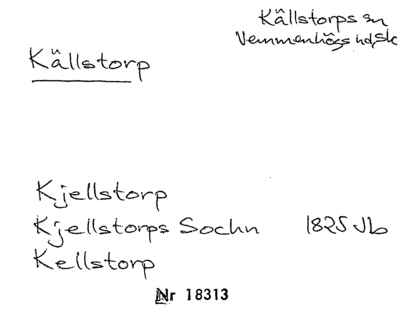 Källstorps sn
Vemmenhögs hd, Sk
Källstorp
Kjellstorp
Kjellstorps Sochn 1825 Jb
Kellstorp
Nr 18313